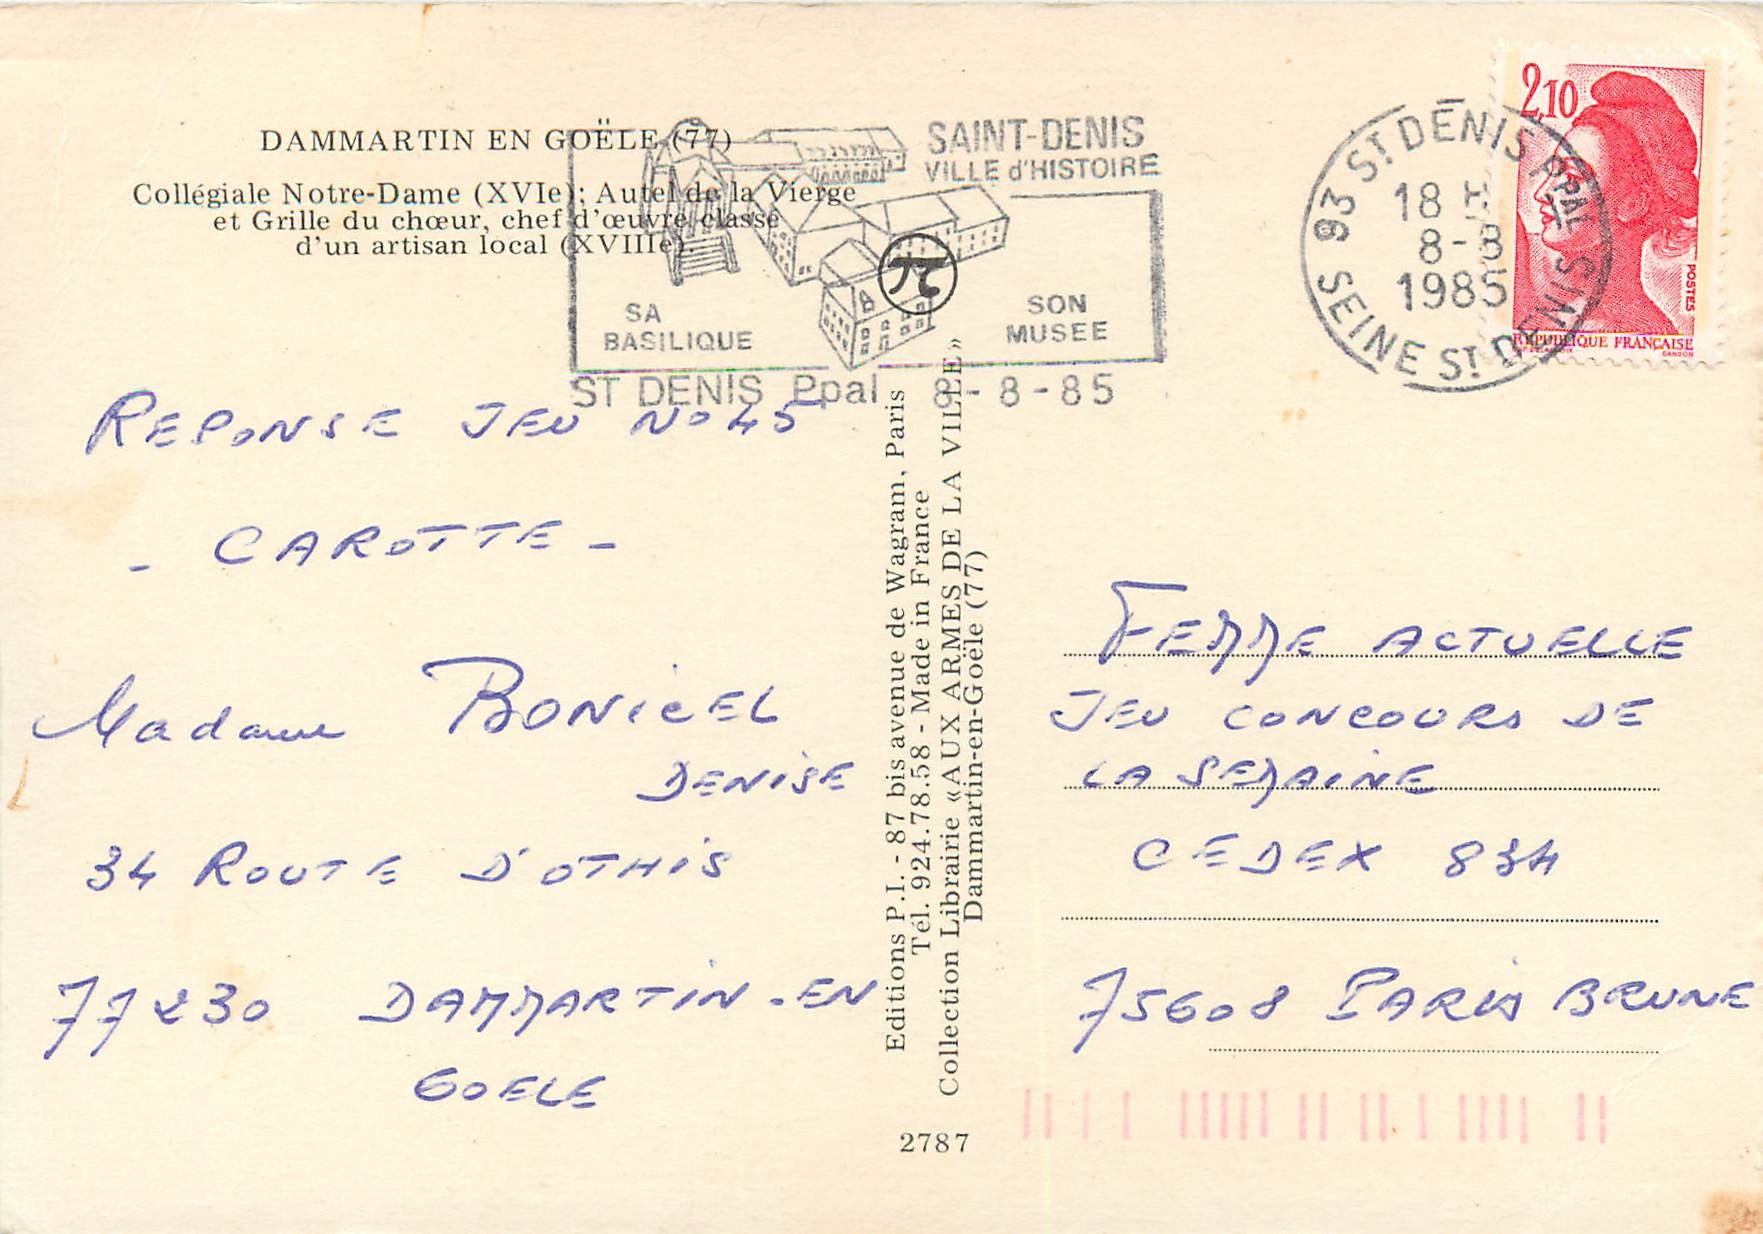 DAMMARTIN EN GOËLE (77)
Collégiale Notre-Dame (XVIe): Autel de la Vierge
et Grille du chœur, chef d'œuvre classé
d'un artisan local (XVIIIe).
SAINT-DENIS
VILLE d'HISTOIRE
SA
BASILIQUE
SON
MUSEE
ST DENIS Ppal 8-8-85
93 ST DENIS PPAL
18 H
8-8
1985
SEINE ST DENIS
2,10
POSTES
REPUBLIQUE FRANÇAISE
GANDON
REPONSE JEU NO 45
- CAROTTE -
Madame BONICEL
DENISE
34 ROUTE D'OTHIS
77230 DAMMARTIN-EN
GOELE
Editions P.I. - 87 bis avenue de Wagram, Paris
Tél. 924.78.58 - Made in France
Collection Librairie «AUX ARMES DE LA VILLE»
Dammartin-en-Goële (77)
2787
FEMME ACTUELLE
JEU CONCOURS DE
LA SEMAINE
CEDEX 834
75608 PARIS BRUNE